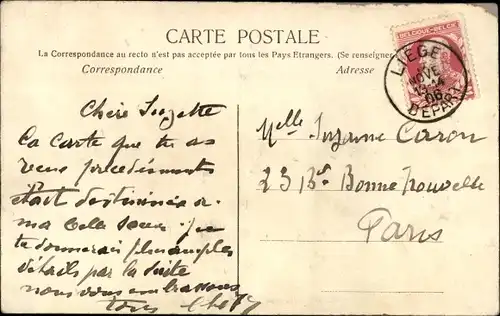 CARTE POSTALE
La Correspondance au recto n'est pas acceptée par tous les Pays Etrangers. (Se renseigner
Correspondance
Adresse
BELGIQUE-BELGIË
LIÉGE
NOVE
13-14
06
DÉPART
Chère Suzette
La carte que tu as
reçue précédemment
était destinée à
ma belle sœur je
te donnerai plus amples
détails par la suite
nous vous embrassons
tous
Melle Suzanne Caron
23 Bd Bonne Nouvelle
Paris